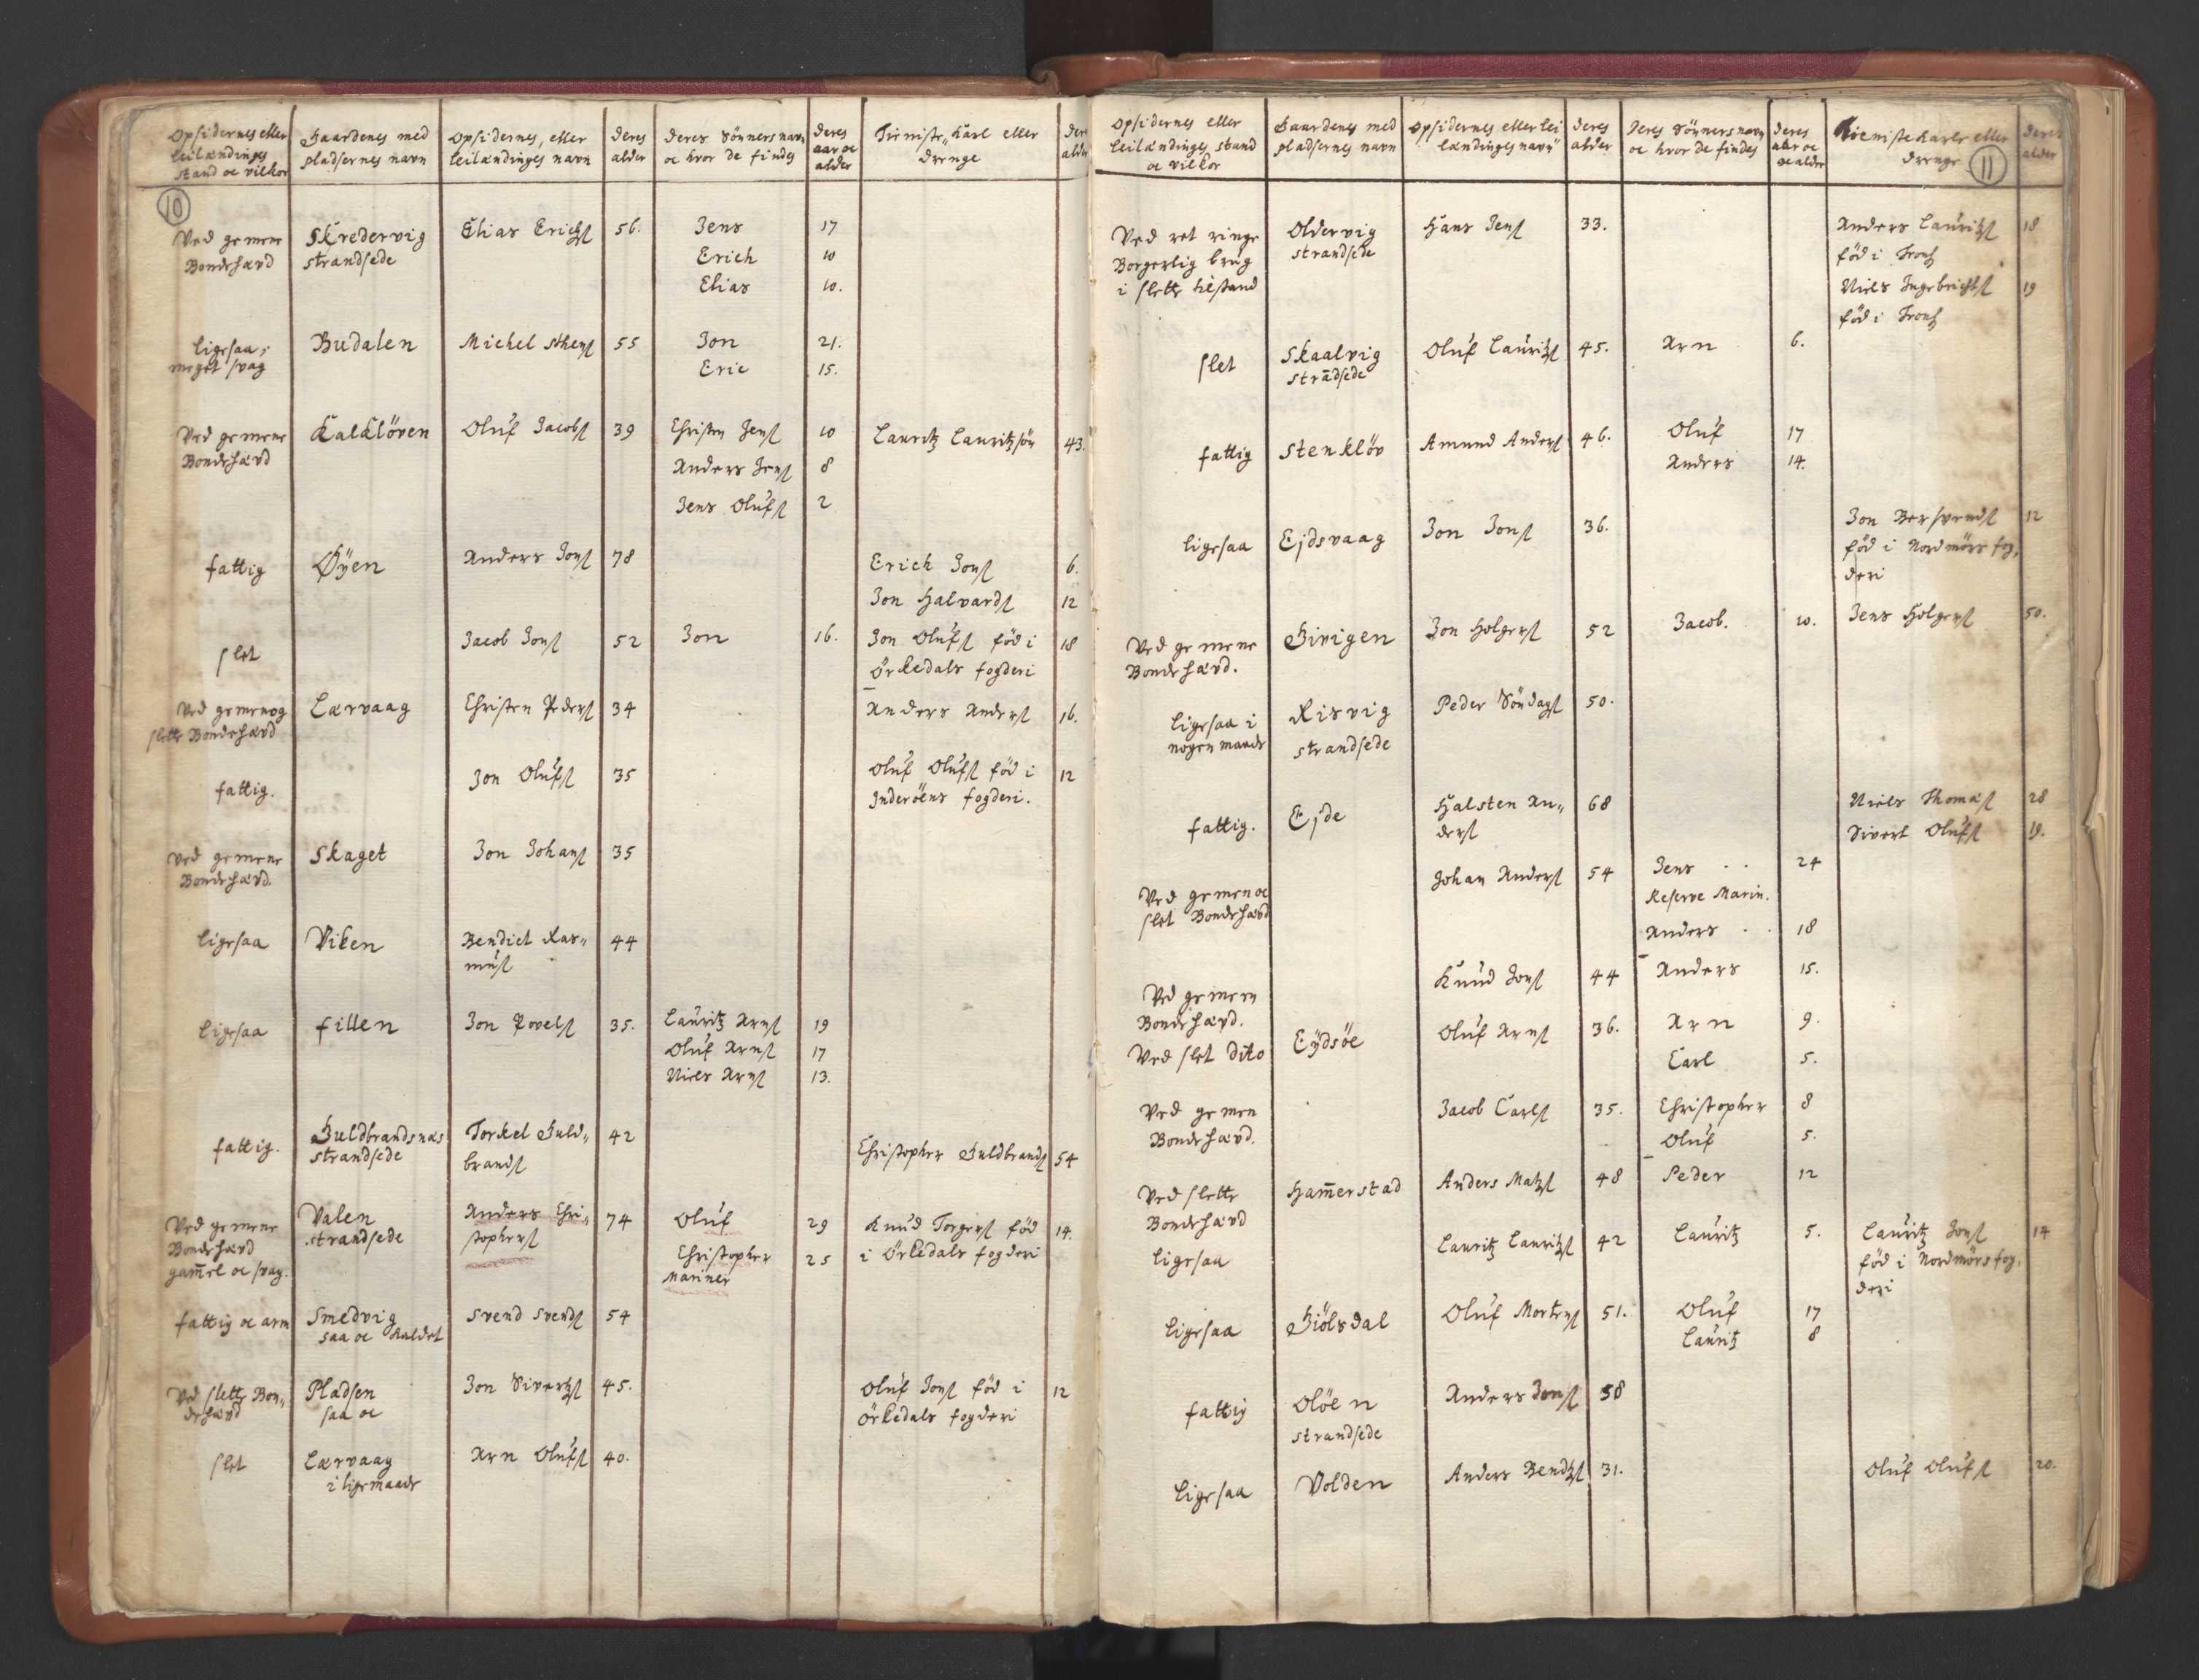 Opsidernes eller leilændinges stand oc vilkor | Gaardenes med pladsernes navn | Opsidernes, eller leilændinges navn | deres alder | deres Sönners navn oc hvor de findes | deres aar oc alder | Tieniste Karl eller drenge | deres alder
10
Ved gemene Bondehærd | Skredervig strandsede | Elias Erichs. | 56. | Jens | 17
Erich | 10
Elias | 10.
ligesaa, meget svag | Budalen | Michel Sthens. | 55 | Jon | 21.
Eric | 15.
Ved gemene Bondehærd | Kalklöven | Oluf Jacobs. | 39 | Christen Jens. | 10 | Lauritz Lauritzsön | 43.
Anders Jens. | 8
Jens Olufs. | 2
fattig | Øyen | Anders Jons. | 78 | Erich Jons. | 6.
Jon Halvards. | 12
slet | Jacob Jons. | 52 | Jon | 16. | Jon Olufs. föd i Örkedals fogderi | 18
Ved gemen og slette Bondehærd | Lærvaag | Christen Peders. | 34 | Anders Anders. | 16.
fattig. | Jon Olufs. | 35 | Oluf Olufs. föd i Inderöens fogderi. | 12
Ved gemene Bondehærd. | Skaget | Jon Johans. | 35
ligesaa | Viken | Bendict Rasmus. | 44
ligesaa | Fillen | Jon Povels. | 35. | Lauritz Arns. | 19
Oluf Arns. | 17
Niels Arns. | 13.
fattig. | Guldbrandsnæs strandsede | Torkel Guldbrands. | 42 | Christopher Guldbrands. | 54
Ved gemene Bondehærd gam̄el oc svag. | Valen strandsede | Anders Christophers. | 74 | Oluf | 29 | Knud Torgers. föd i Örkedals fogderi | 14.
Christopher Mariner | 25
fattig oc arm | Smedvig saa oc kaldet | Svend Svends. | 54
Ved slette Bondehærd | Pladsen saa oc | Jon Sivertz. | 45. | Oluf Jons. föd i Örkedals fogderi | 12
slet | Lærvaag i ligemaade | Arn Olufs. | 40.
Opsidernes eller leilændinges stand oc vilkor | Gaardenes med pladsernes navn | Opsidernes eller leilændinges navn | deres alder | deres Sönners navn oc hvor de findes | deres aar oc alder | Tieniste Karle eller drenge | deres alder
11
Ved ret ringe Borgerlig brug i slette tilstand | Oldervig strandsede | Hans Jens. | 33. | Anders Lauritz. föd i Tronh. | 18
Niels Ingebrights. föd i Tronh. | 19
slet | Skaalvig strādsede | Oluf Lauritz. | 45. | Arn | 6.
fattig | Stenklöv | Amund Anders. | 46. | Oluf | 17
Anders | 14.
ligesaa | Ejdsvaag | Jon Jons. | 36. | Jon Bersvends. föd i Nordmörs fogderi | 12
Ved gemene Bondehærd. | Givigen | Jon Holgers. | 52 | Jacob. | 10. | Jens Holgers. | 50.
ligesaa i nogen maade | Risvig strandsede | Peder Söndags. | 50.
fattig. | Ejde | Halsten Anders. | 68 | Niels Thomas. | 28
Sivert Olufs. | 19.
Ved gemen oc slet Bondehærd | Johan Anders. | 54 | Jens Reserve Marin. | 24
Anders | 18
Ved gemen Bondehærd. | Knud Jons. | 44 | Anders | 15.
Ved slet dito | Eÿdsöe | Oluf Arns. | 36. | Arn | 9.
Carl | 5.
Ved gemen Bondehærd. | Jacob Carls. | 35. | Christopher | 8
Oluf | 5.
Ved slette Bondehærd | Ham̄erstad | Anders Matz. | 48 | Peder | 12
ligesaa | Lauritz Lauritz. | 42 | Lauritz | 5. | Lauritz Jons. föd i Nordmörs fogderi | 14
ligesaa | Giölsdal | Oluf Mortens. | 51. | Oluf | 17
Lauritz | 8
fattig | Olöen strandsede | Anders Jons. | 38
ligesaa | Volden | Anders Bendtz. | 31. | Oluf Olufs. | 20.